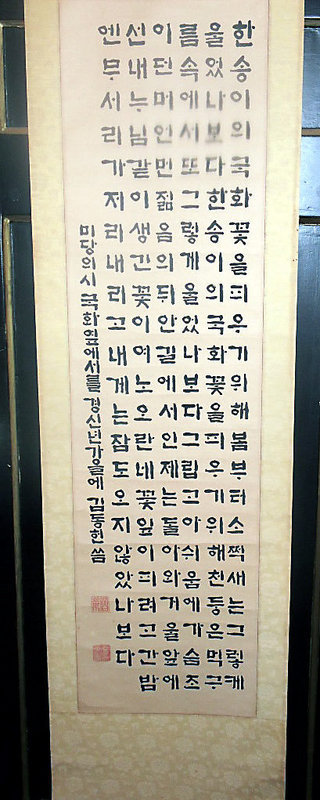 한송이의국화꽃을피우기위해봄부터소쩍새는그렇케
울었나보다한송이의국화꽃을피우기위해천둥은먹구
름속에서또그렇게울었나보다그립고아쉬움에가슴조
이던머언먼젊음의뒤안길에서인제는돌아와거울앞에
선내누님같이생긴꽃이여노오란내꽃잎이피려고간밤
엔무서리가저리내리고내게는잠도오지않았나보다
미당의시 국화옆에서를 경신년가을에 김동헌 씀